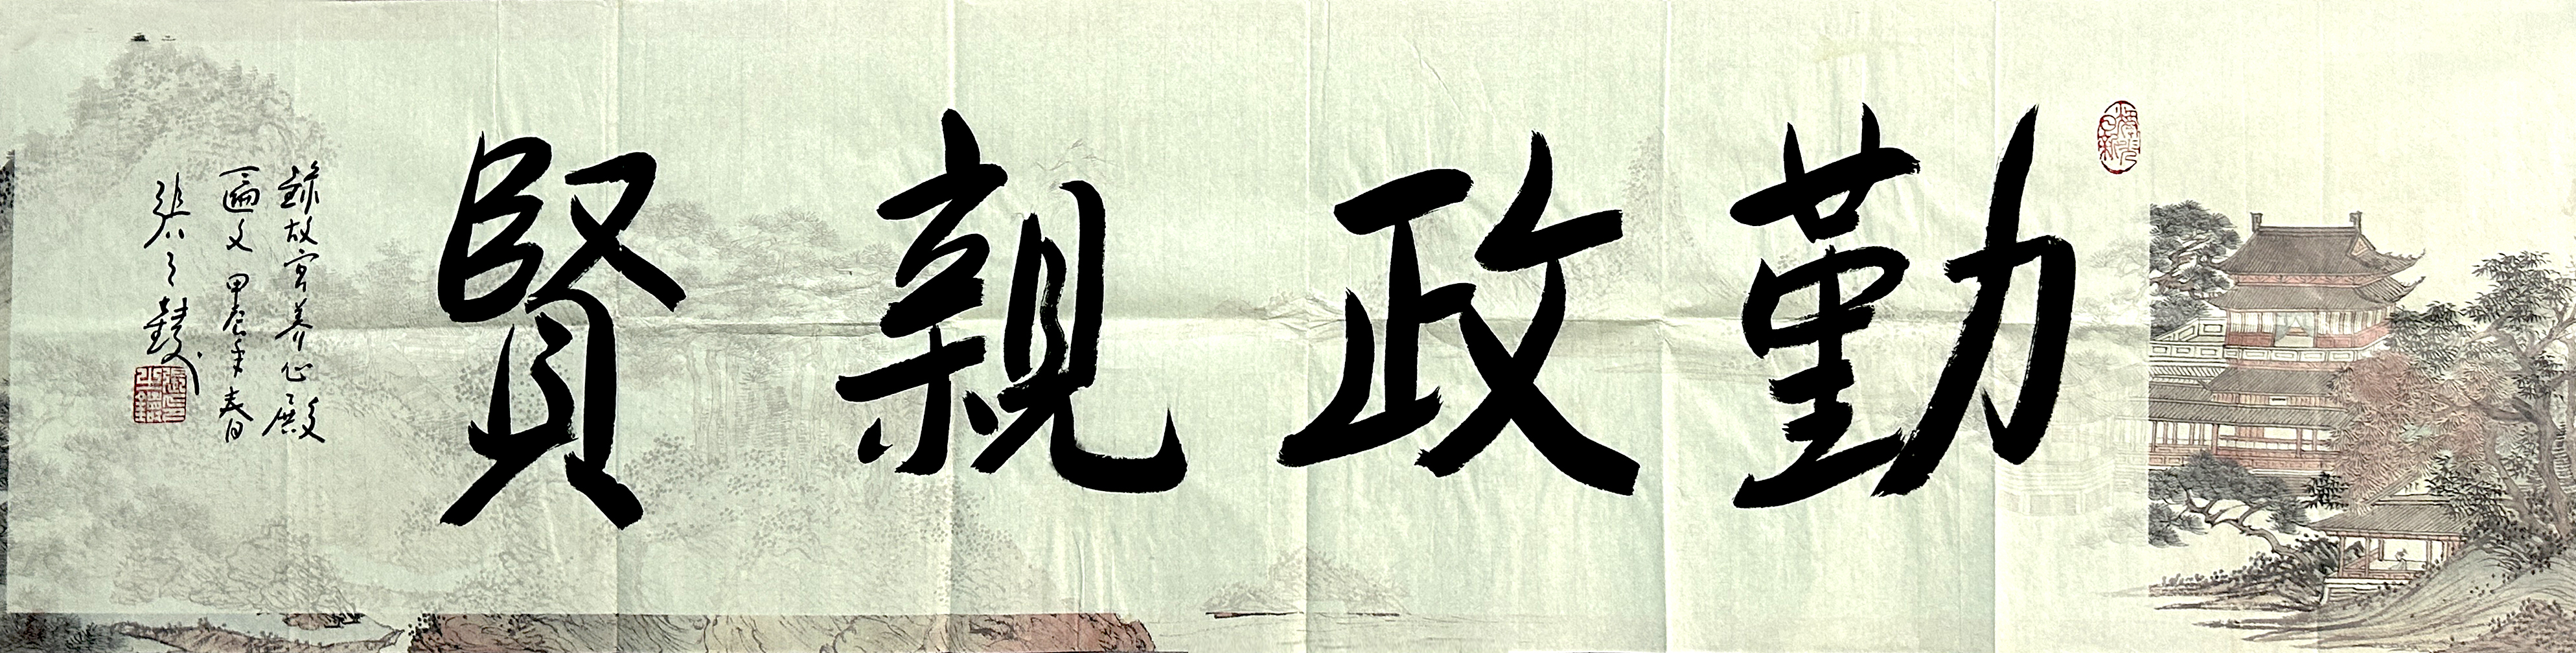 勤政親賢
錄故宮養心殿
匾文 甲辰年春日